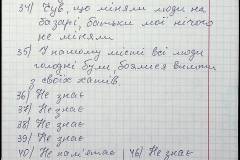 34) Чув, що міняли люди на
базарі, батьки мої нічого
не міняли.
35) У нашому місті всі люди
голодні були, боялися вийти
з своїх хатів.
36) Не знає
37) Не знає
38) Не знає
39) Не знає
40) Не пам'ятає | 46) Не знає